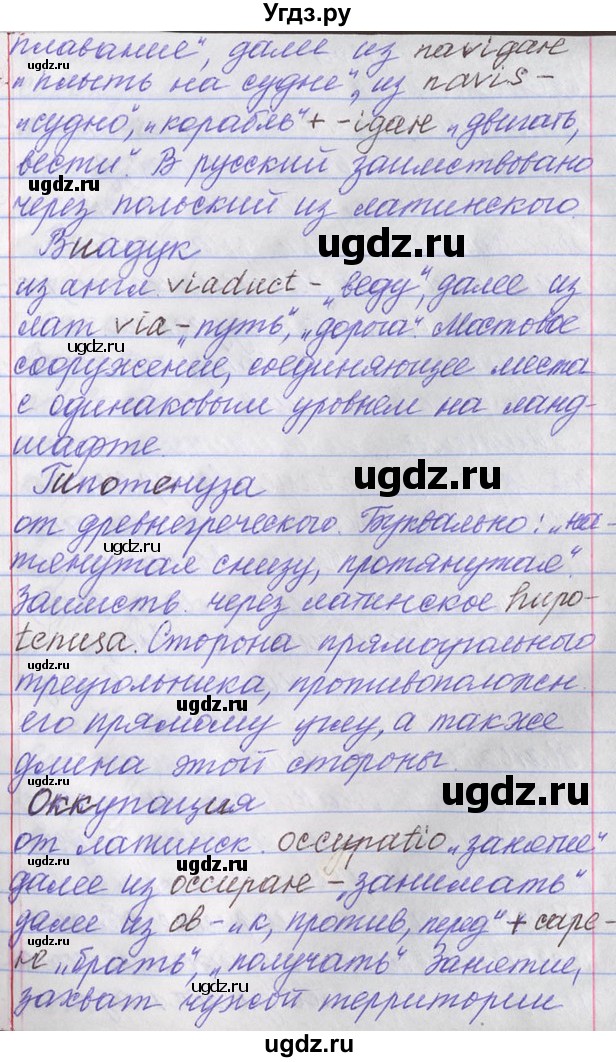 Угдз.ру
плавание", далее из navigaн
„плыть на судне", из navis -
„судно", „корабль" + -igaн „двигать,
вести". В русский заимствовано
через польский из латинского.
Виадук
из англ. viaduct - „веду", далее из
лат via - „путь", „дорога". Мостовое
сооружение, соединяющее места
с одинаковым уровнем на ланд-
шафте.
Гипотенуза
от древнегреческого. Буквально: „на-
тянутая снизу, протянутая".
Заимств. через латинское hupo-
tenusa. Сторона прямоугольного
треугольника, противоположн.
его прямому углу, а также
длина этой стороны.
Оккупация
от латинск. occupatio „занятие"
далее из occupaне - „занимать"
далее из ob - „к, против, перед" + cape-
не „брать", „получать" Занятие,
захват чужой территории
ugdz.ru
ugdz.ru
ugdz.ru
ugdz.ru
ugdz.ru
ugdz.ru
ugdz.ru
ugdz.ru
ugdz.ru
ugdz.ru
ugdz.ru
ugdz.ru
ugdz.ru
ugdz.ru